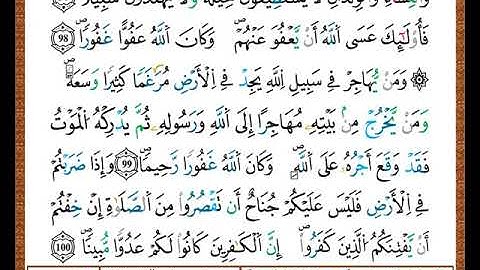 وَٱلنِّسَآءِ وَٱلۡوِلۡدَٰنِ لَا يَسۡتَطِيعُونَ حِيلَةٗ وَلَا يَهۡتَدُونَ سَبِيلٗا
فَأُوْلَٰٓئِكَ عَسَى ٱللَّهُ أَن يَعۡفُوَ عَنۡهُمۡۚ وَكَانَ ٱللَّهُ عَفُوًّا غَفُورٗا 98
۞ وَمَن يُهَاجِرۡ فِي سَبِيلِ ٱللَّهِ يَجِدۡ فِي ٱلۡأَرۡضِ مُرَٰغَمٗا كَثِيرٗا وَسَعَةٗۚ
وَمَن يَخۡرُجۡ مِنۢ بَيۡتِهِۦ مُهَاجِرًا إِلَى ٱللَّهِ وَرَسُولِهِۦ ثُمَّ يُدۡرِكۡهُ ٱلۡمَوۡتُ
فَقَدۡ وَقَعَ أَجۡرُهُۥ عَلَى ٱللَّهِۗ وَكَانَ ٱللَّهُ غَفُورٗا رَّحِيمٗا 99 وَإِذَا ضَرَبۡتُمۡ
فِي ٱلۡأَرۡضِ فَلَيۡسَ عَلَيۡكُمۡ جُنَاحٌ أَن تَقۡصُرُواْ مِنَ ٱلصَّلَوٰةِ إِنۡ خِفۡتُمۡ
أَن يَفۡتِنَكُمُ ٱلَّذِينَ كَفَرُوٓاْۚ إِنَّ ٱلۡكَٰفِرِينَ كَانُواْ لَكُمۡ عَدُوّٗا مُّبِينٗا 100